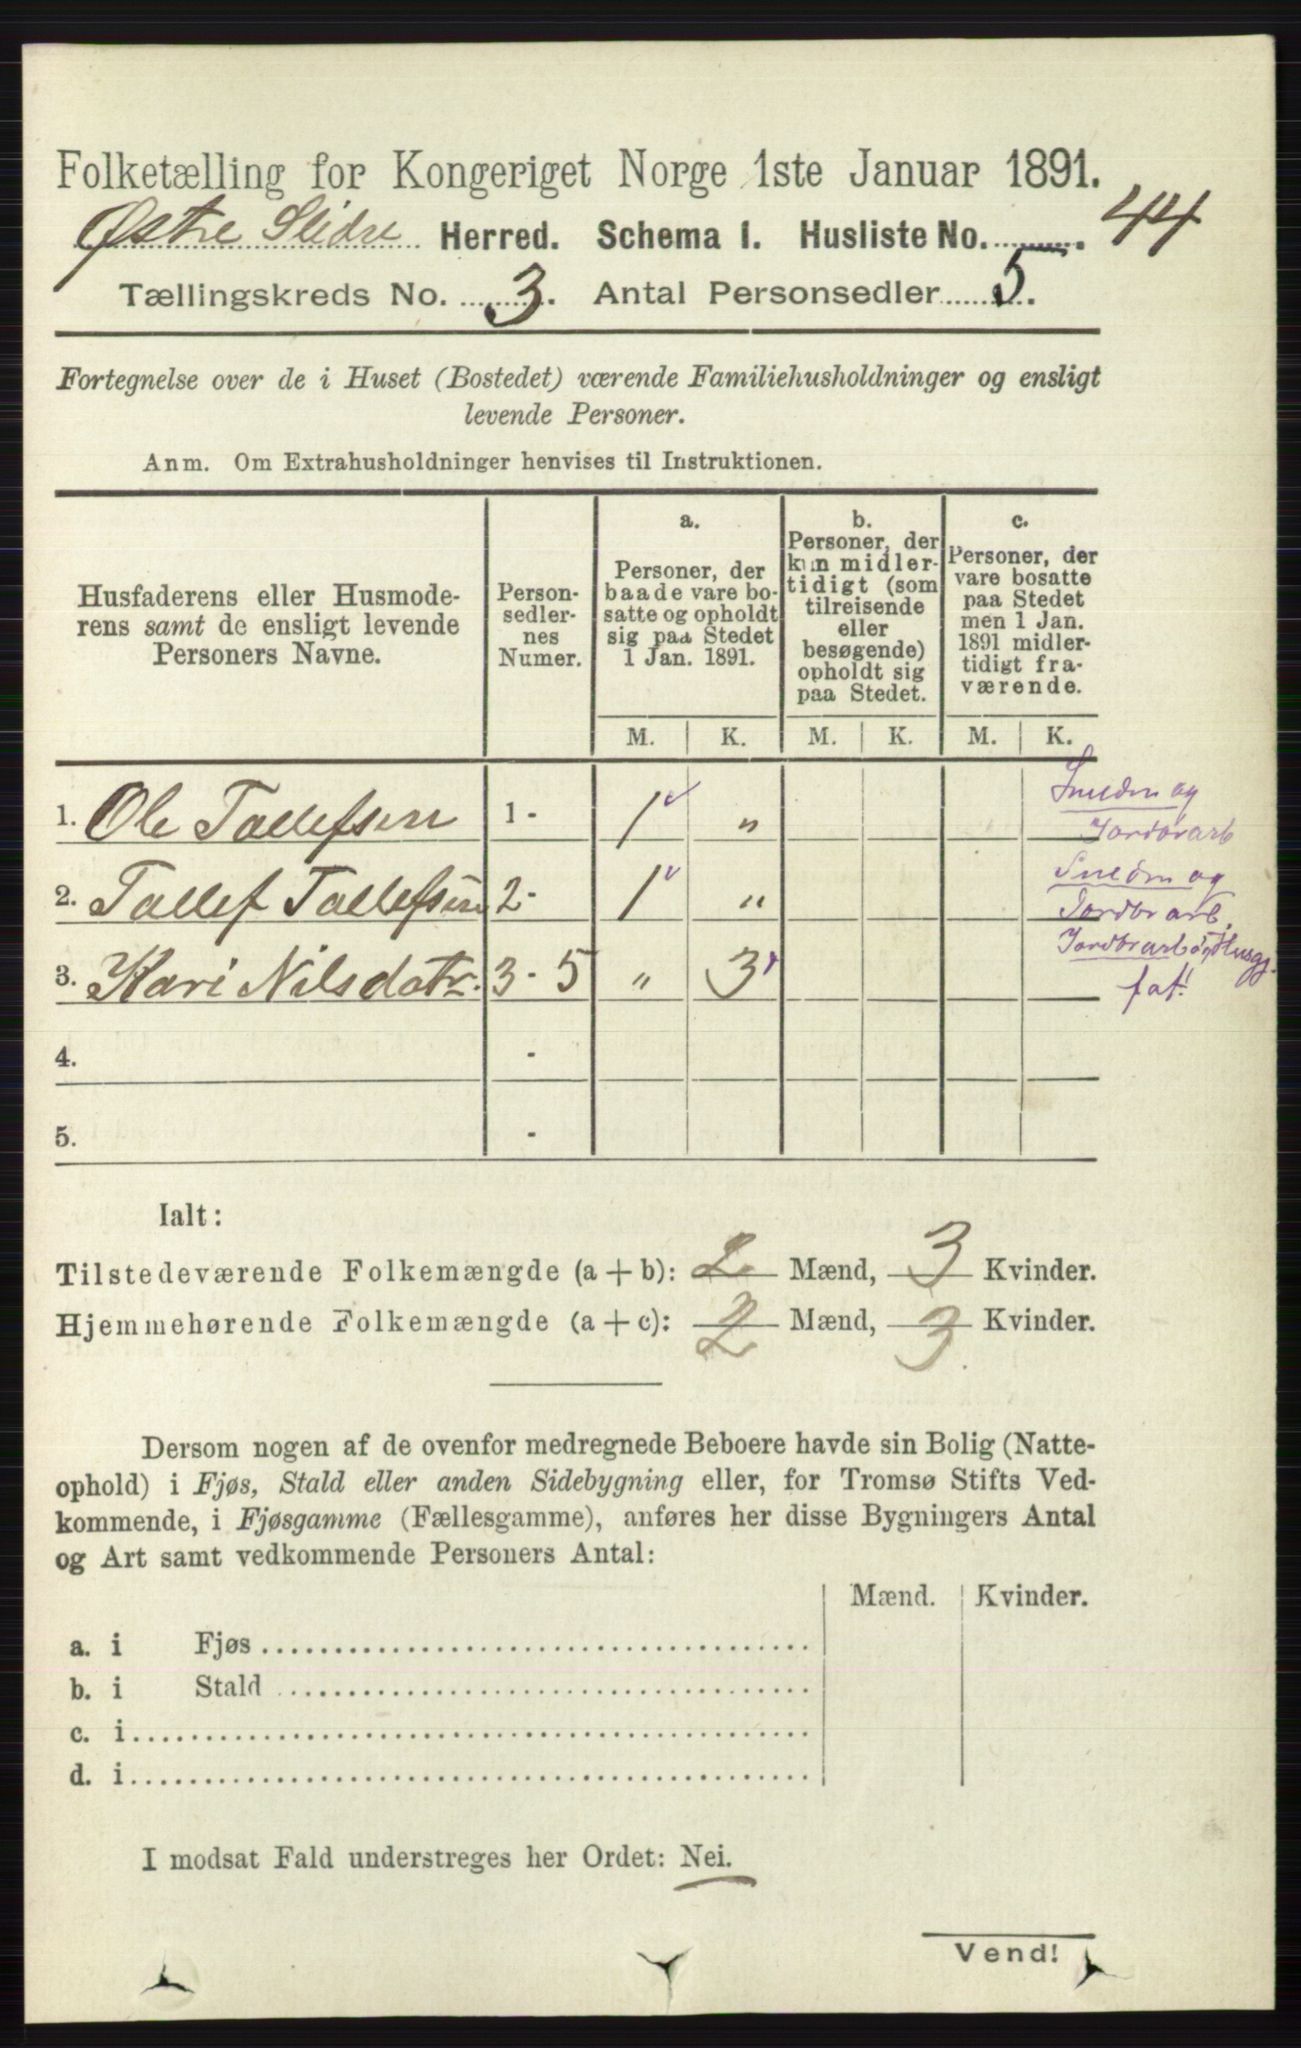 Folketælling for Kongeriget Norge 1ste Januar 1891.
Østre Slidre Herred. Schema I. Husliste No. 44
Tællingskreds No. 3. Antal Personsedler 5.
Fortegnelse over de i Huset (Bostedet) værende Familiehusholdninger og ensligt
levende Personer.
Anm. Om Extrahusholdninger henvises til Instruktionen.
Husfaderens eller Husmode-
rens samt de ensligt levende
Personers Navne.
Person-
sedler-
nes
Numer.
a.
Personer, der
baade vare bo-
satte og opholdt
sig paa Stedet
1 Jan. 1891.
b.
Personer, der
kun midler-
tidigt (som
tilreisende
eller
besøgende)
opholdt sig
paa Stedet.
c.
Personer, der
vare bosatte
paa Stedet
men 1 Jan.
1891 midler-
tidigt fra-
værende.
M. K. M. K. M. K.
1. Ole Tollefsen 1 - 1 "
Smedm og
Jordbrarb
2. Tollef Tollefsen 2 - 1 "
Smedm og
Jordbrarb.
3. Kari Nilsdatr. 3 - 5 " 3
Jordbrarb Husgj.
fat.
4. -
5. -
Ialt:
Tilstedeværende Folkemængde (a + b): 2 Mænd, 3 Kvinder.
Hjemmehørende Folkemængde (a + c): 2 Mænd, 3 Kvinder.
Dersom nogen af de ovenfor medregnede Beboere havde sin Bolig (Natte-
ophold) i Fjøs, Stald eller anden Sidebygning eller, for Tromsø Stifts Ved-
kommende, i Fjøsgamme (Fællesgamme), anføres her disse Bygningers Antal
og Art samt vedkommende Personers Antal:
Mænd. Kvinder.
a. i Fjøs
b. i Stald
c. i
d. i
I modsat Fald understreges her Ordet: Nei.
Vend!